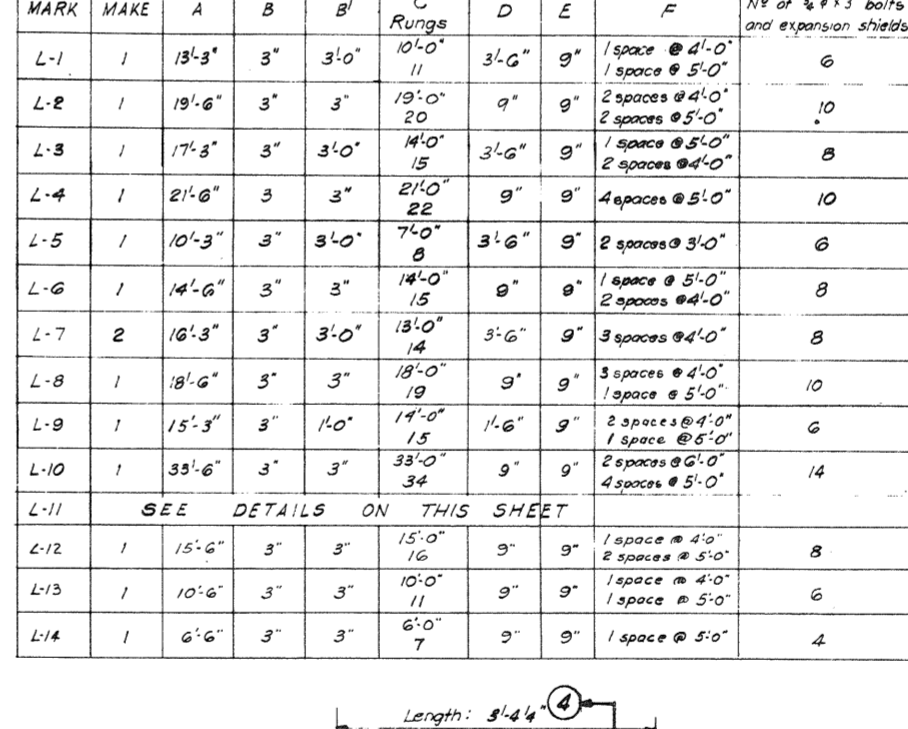 MARK MAKE A B B' C Rungs D E F Nº of ¾"φ x 3" bolts and expansion shields
L-1 1 13'-3" 3" 3'-0" 10'-0" 11 3'-6" 9" 1 space @ 4'-0" 1 space @ 5'-0" 6
L-2 1 19'-6" 3" 3" 19'-0" 20 9" 9" 2 spaces @ 4'-0" 2 spaces @ 5'-0" 10
L-3 1 17'-3" 3" 3'-0" 14'-0" 15 3'-6" 9" 1 space @ 5'-0" 2 spaces @ 4'-0" 8
L-4 1 21'-6" 3 3" 21'-0" 22 9" 9" 4 spaces @ 5'-0" 10
L-5 1 10'-3" 3" 3'-0" 7'-0" 8 3'-6" 9" 2 spaces @ 3'-0" 6
L-6 1 14'-6" 3" 3" 14'-0" 15 9" 9" 1 space @ 5'-0" 2 spaces @ 4'-0" 8
L-7 2 16'-3" 3" 3'-0" 13'-0" 14 3'-6" 9" 3 spaces @ 4'-0" 8
L-8 1 18'-6" 3" 3" 18'-0" 19 9" 9" 3 spaces @ 4'-0" 1 space @ 5'-0" 10
L-9 1 15'-3" 3" 1'-0" 14'-0" 15 1'-6" 9" 2 spaces @ 4'-0" 1 space @ 5'-0" 6
L-10 1 33'-6" 3" 3" 33'-0" 34 9" 9" 2 spaces @ 6'-0" 4 spaces @ 5'-0" 14
L-11 SEE DETAILS ON THIS SHEET
L-12 1 15'-6" 3" 3" 15'-0" 16 9" 9" 1 space @ 4'-0" 2 spaces @ 5'-0" 8
L-13 1 10'-6" 3" 3" 10'-0" 11 9" 9" 1 space @ 4'-0" 1 space @ 5'-0" 6
L-14 1 6'-6" 3" 3" 6'-0" 7 9" 9" 1 space @ 5'-0" 4
Length: 3'-4¼" 4